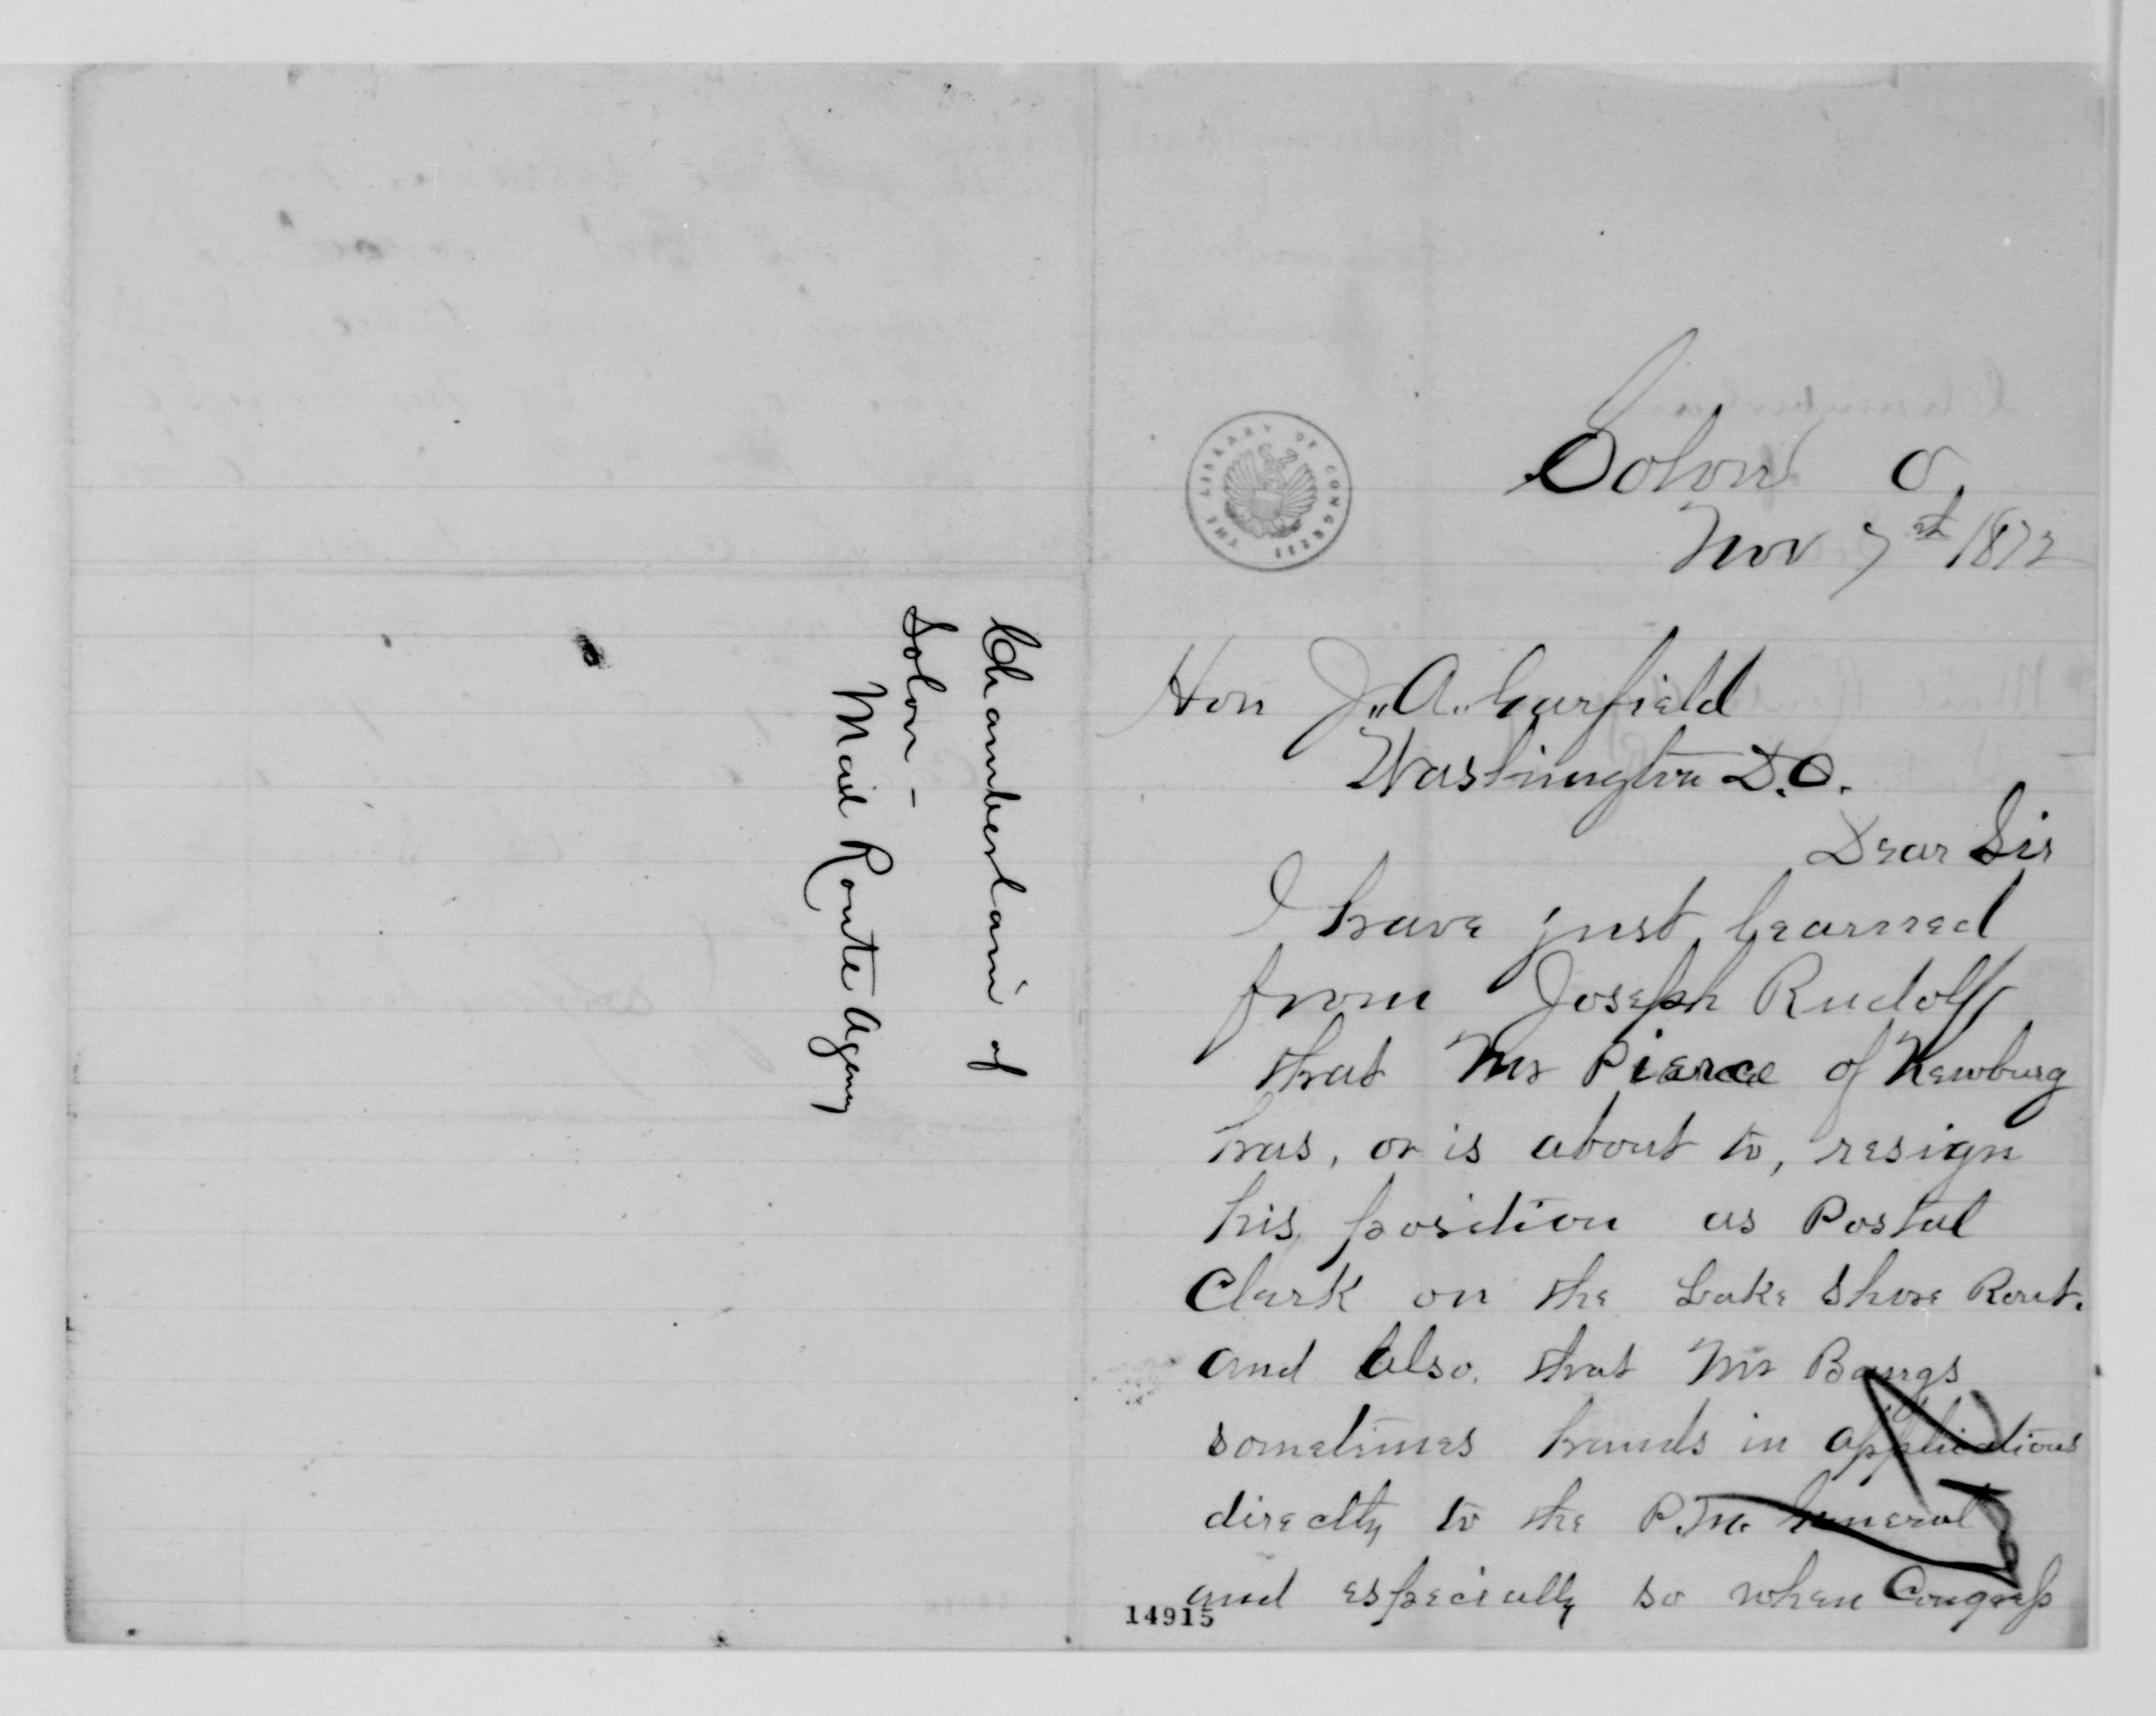 Chamberlain of
Solon -
Mail Route Agency
THE LIBRARY OF CONGRESS
Solon O,
Nov 7th 1872
Hon J. A. Garfield
Washington D.C.
Dear Sir
I have just learned
from Joseph Rudolf
that Mr Pierce of Newburg
has, or is about to, resign
his position as Postal
Clerk on the Lake Shore Rout.
and also. that Mr Bangs
sometimes hands in applications
directly to the P.M. General
and especially so when Congress
14915